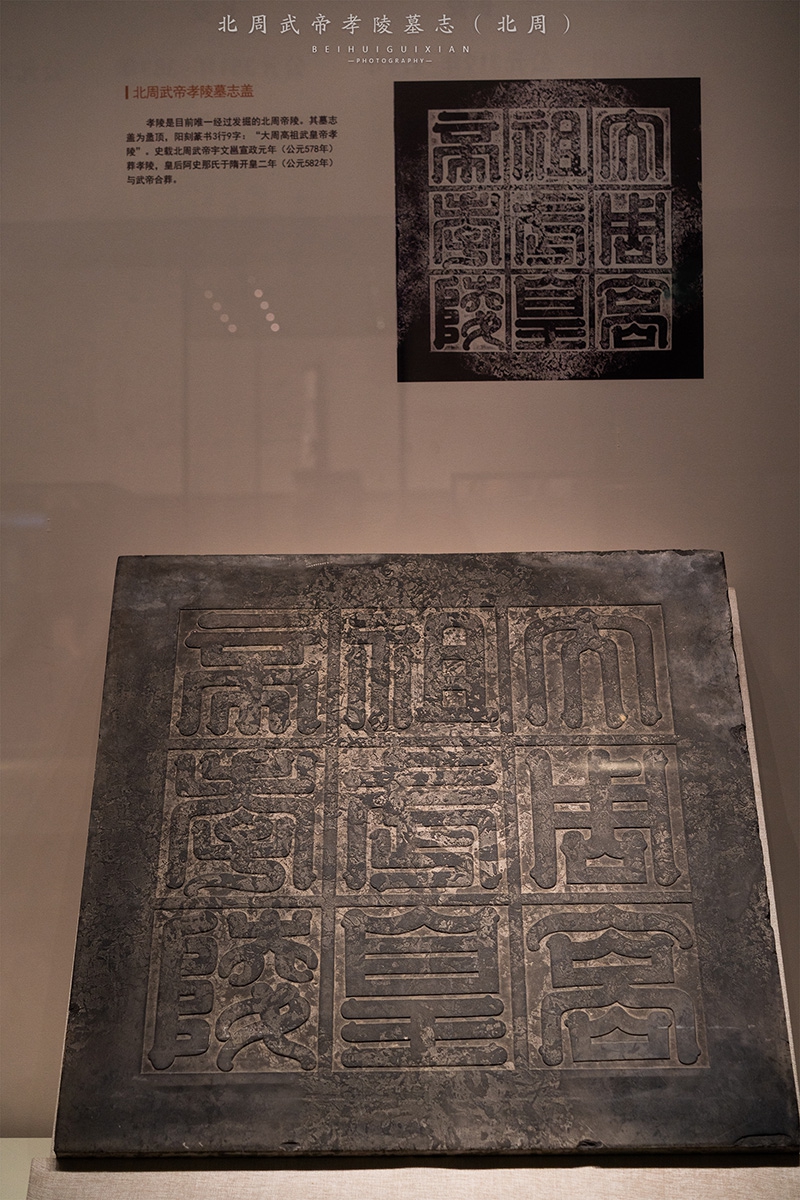 北周武帝孝陵墓志（北周）
BEIHUIGUIXIAN
—PHOTOGRAPHY—
北周武帝孝陵墓志盖
孝陵是目前唯一经过发掘的北周帝陵。其墓志
盖为盝顶，阳刻篆书3行9字：“大周高祖武皇帝孝
陵”。史载北周武帝宇文邕宣政元年（公元578年）
葬孝陵，皇后阿史那氏于隋开皇二年（公元582年）
与武帝合葬。
大周高
祖武皇
帝孝陵
大周高
祖武皇
帝孝陵